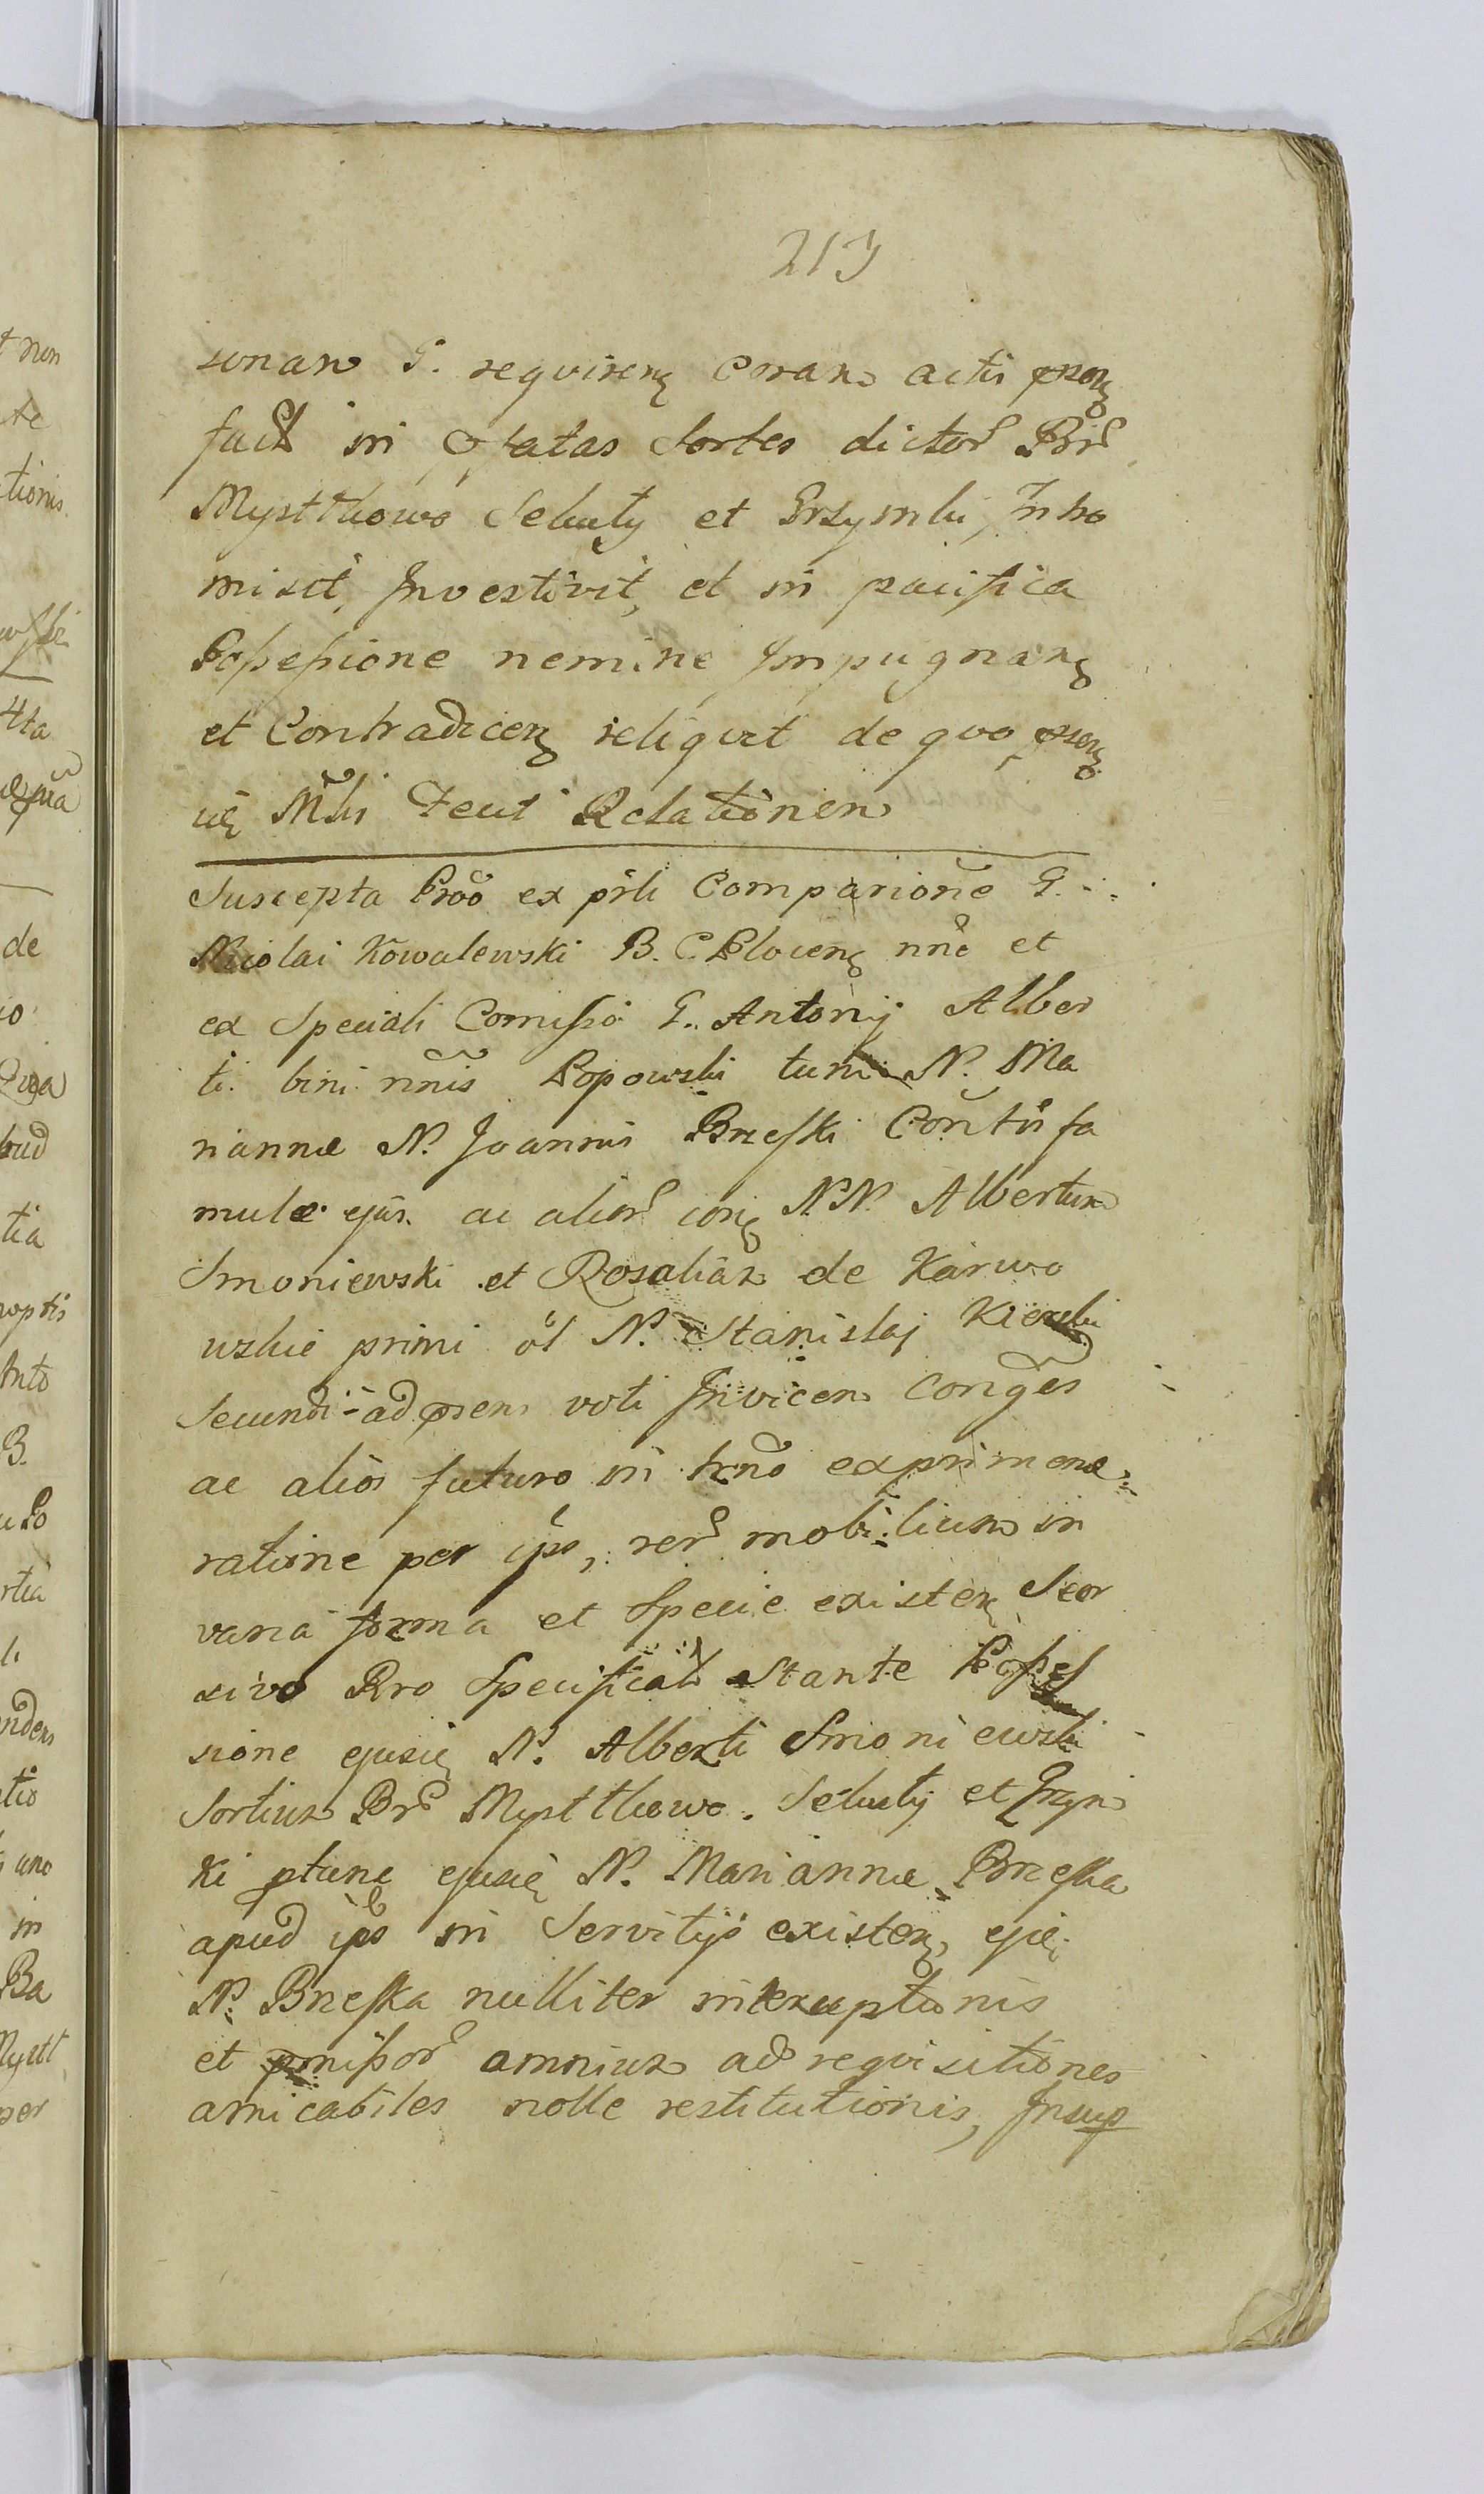 213
sonam G. reqviren coram actis prsen
fact in pfatas Sortes dictor Bnr
Mystkowo Seluty et Grzymki, Intro
misit, Investivit, et in pacifica
Possessione nemine Impugnan
et Contradicen reliqvit de qvo prsen
Relationem
Suscepta Proo ex prli Comparione G.
Nicolai Kowalewski B. C. Plocen nne et
ex Speciali Comisso G. Antonij Alber
ti bini nnis Popowski tum N. Ma
riannæ N. Joannis Brzeski Contis fa
mulæ ejus. ac alior N.N. Albertum
Smoniewski et Rosaliam de Karwo
wskie primi ol N. Stanislaj
Secundi ad prsens voti Invicem Conges
ac alios futuro in trno exprimen
ratione per ipso, rer mobilium in
varia forma et Specie existen Seor
sivo Pro Specificat Stante Posses
sione ejusd N. Alberti Smoniewski
Sortium Br Mystkowo. Seluty et Grzym
ki ptunc ejusd N. Mariannæ Brzeska
apud ipso in Servitijs existen, ejd
N. Brzeska nulliter interceptionis
et pmissor omnium ad reqvisitiones
amicabiles nolle restitutionis, Insup